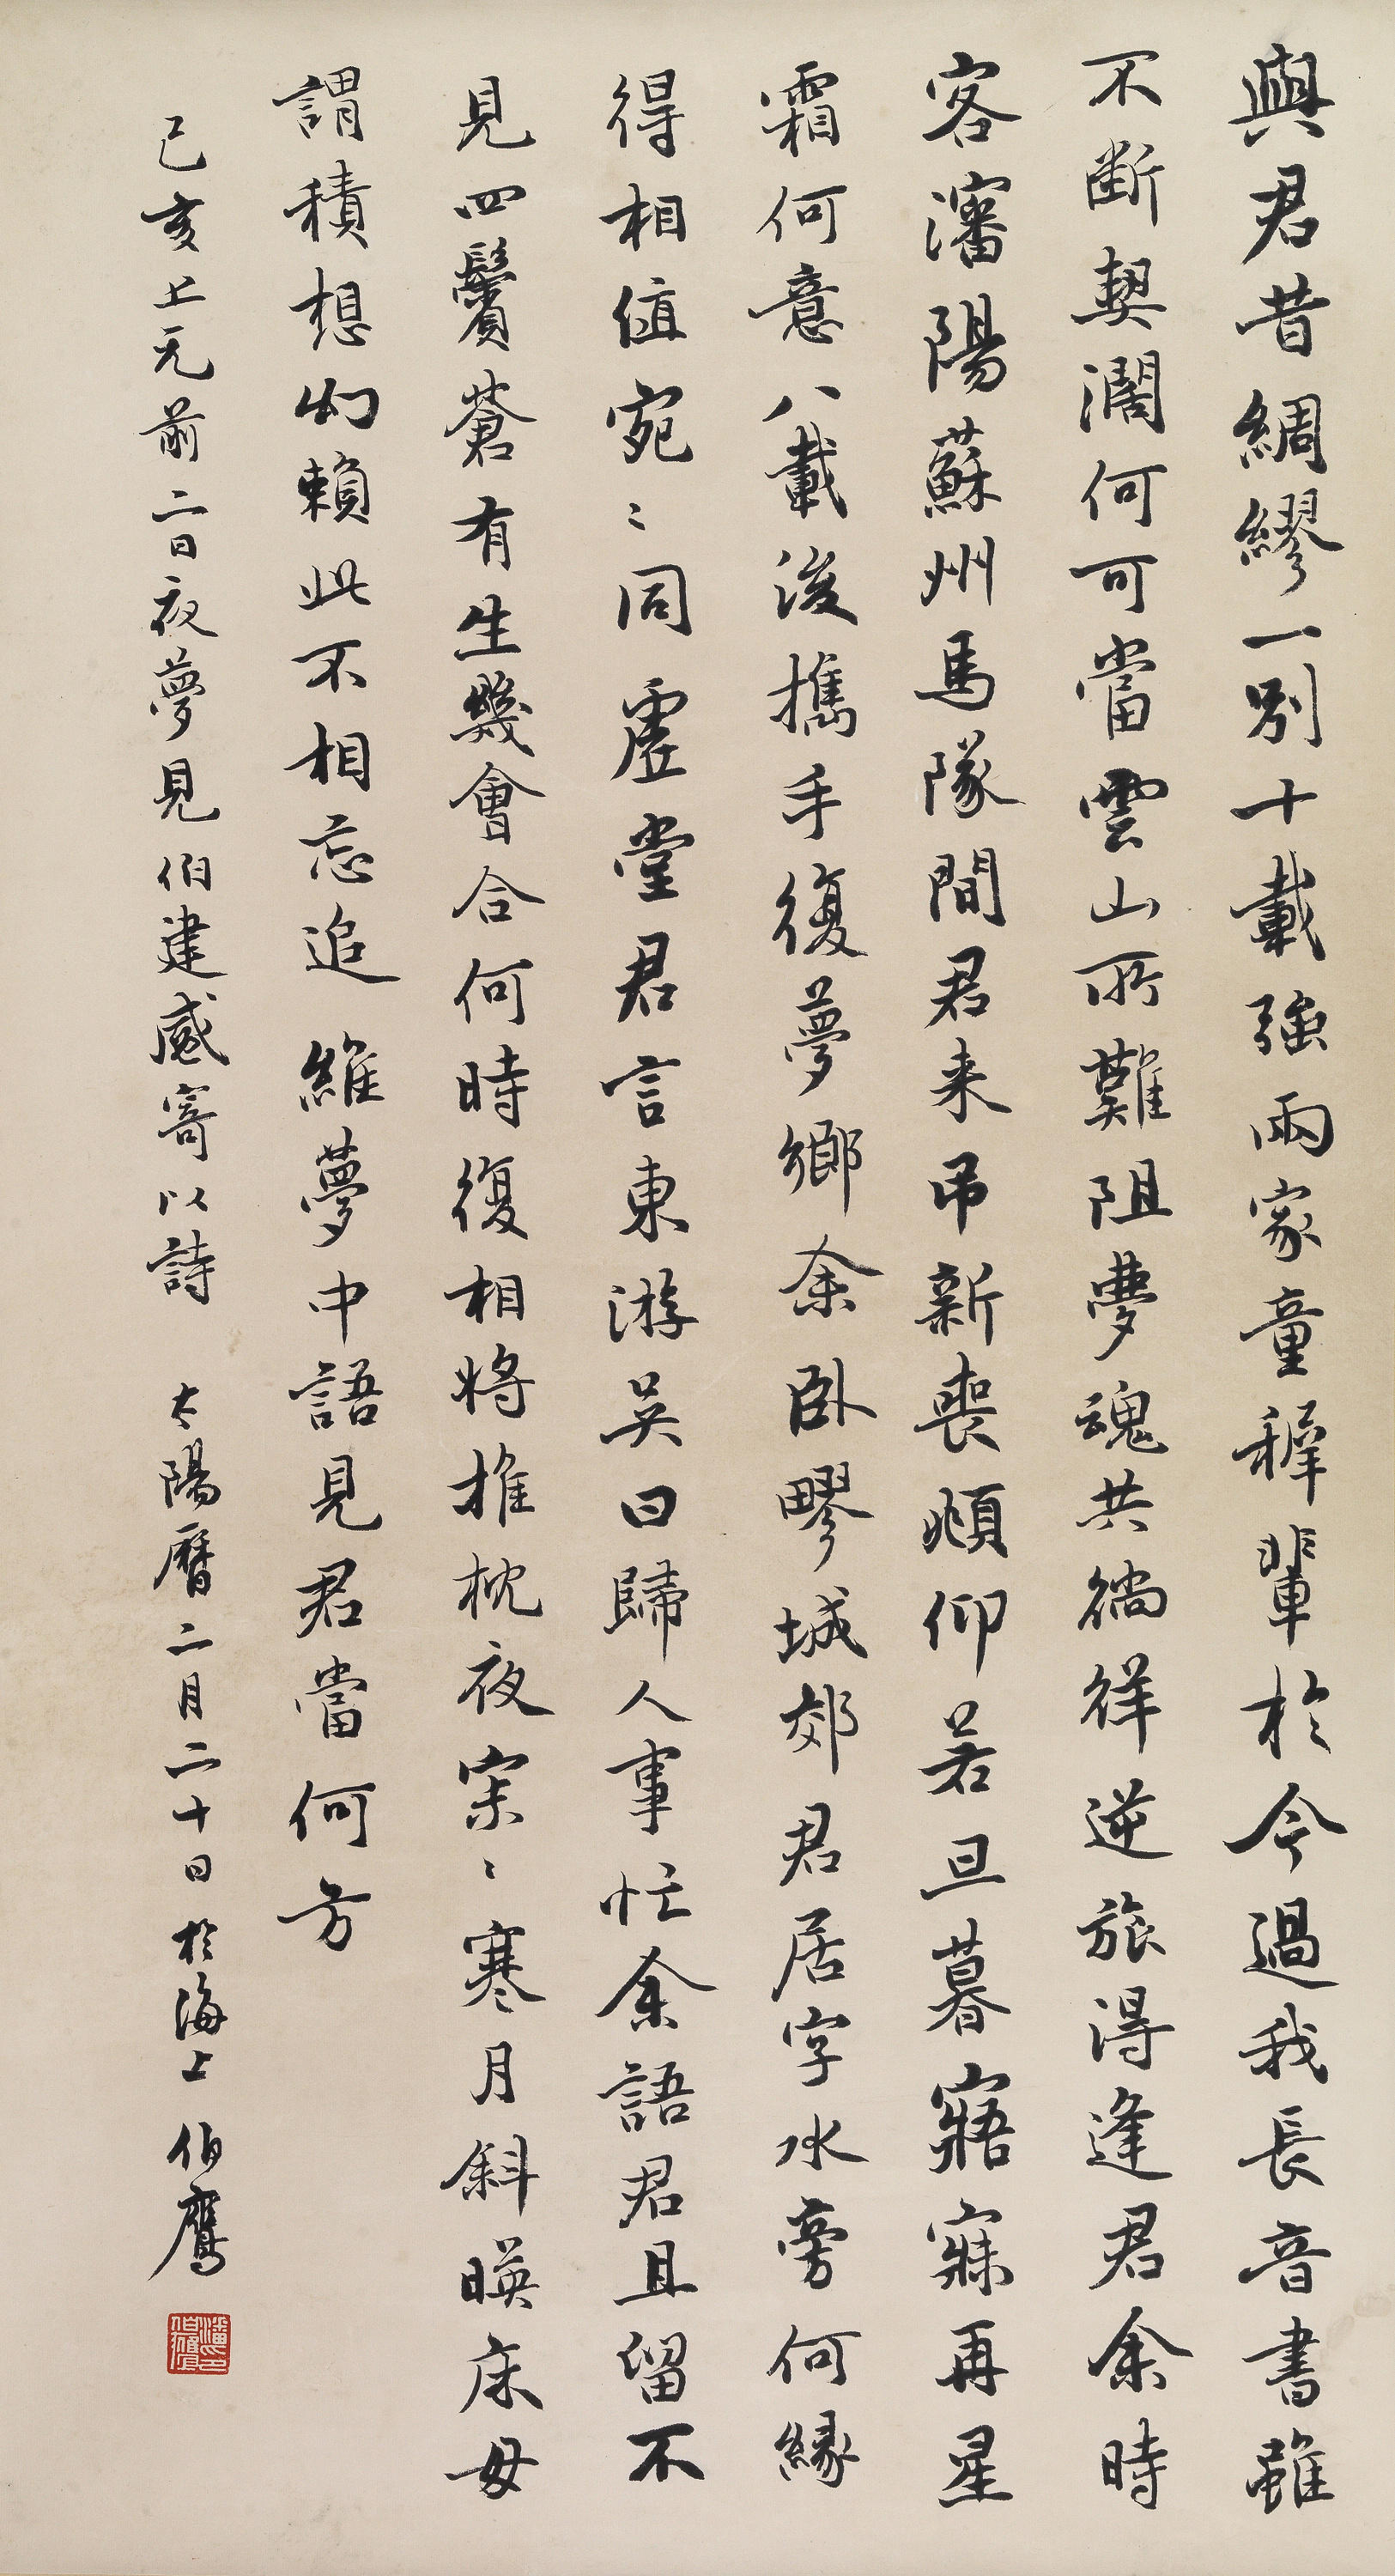 與君昔綢繆一別十載強兩家童穉輩於今過我長音書雖
不斷契濶何可當雲山所難阻夢魂共徜徉逆旅得逢君余時
客瀋陽蘇州馬隊間君来弔新喪頫仰若旦暮寤寐再星
霜何意八載後攜手復夢鄉余臥嘐城郊君居字水旁何緣
得相值宛〻同虛堂君言東游吳曰歸人事忙余語君且留不
見四鬢蒼有生幾會合何時復相將推枕夜寀〻寒月斜暎床毋
謂積想幻賴此不相忘追維夢中語見君當何方
己亥上元前二日夜夢見伯建感寄以詩 太陽曆二月二十日於海上伯鷹
潘伯鷹印